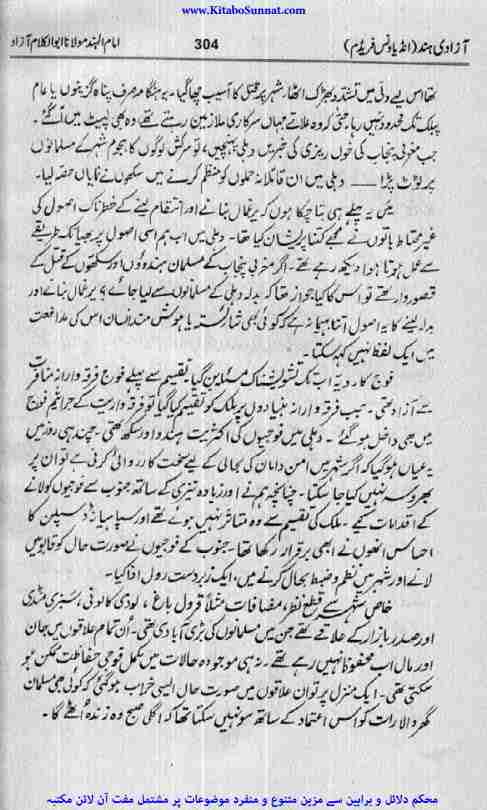 www.KitaboSunnat.com
آزادی ہند (انڈیا ونس فریڈم) 304 امام الہند مولانا ابوالکلام آزاد
تھا اس لیے دلّی میں تشدد بھڑک اٹھا، شہر پر قتل کا آسیب چھا گیا۔ یہ ہنگامہ صرف پناہ گزینوں یا عام
پبلک تک محدود نہیں رہا حتیٰ کہ وہ علاقے جہاں سرکاری ملازمین رہتے تھے وہ بھی لپیٹ میں آگئے۔
جب مغربی پنجاب کی خوں ریزی کی خبریں دہلی پہنچیں، تو سرکش لوگوں کا ہجوم شہر کے مسلمانوں
پر ٹوٹ پڑا ــــ دہلی میں ان قاتلانہ حملوں کو منظم کرنے میں سکھوں نے نمایاں حصہ لیا۔
میں یہ پہلے ہی بتا چکا ہوں کہ یرغمال بنانے اور انتقام لینے کے خطرناک اصول کی
غیر محتاط باتوں نے مجھے کتنا پریشان کیا تھا۔ دہلی میں اب ہم اسی اصول پر بھیانک طریقے
سے عمل ہوتا ہوا دیکھ رہے تھے۔ اگر مغربی پنجاب کے مسلمان ہندوؤں اور سکھوں کے قتل کے
قصوروار تھے تو اس کا کیا جواز تھا کہ بدلہ دہلی کے مسلمانوں سے لیا جائے؟ یرغمال بنانے اور
بدلہ لینے کا یہ اصول اتنا بہیمانہ ہے کہ کوئی بھی شائستہ یا ہوش مند انسان اس کی مدافعت
میں ایک لفظ نہیں کہہ سکتا۔
فوج کا رویہ اب تک تشویشناک مسئلہ بن گیا۔ تقسیم سے پہلے فوج فرقہ وارانہ منافرت
سے آزاد تھی۔ جب فرقہ وارانہ بنیادوں پر ملک کو تقسیم کیا گیا تو فرقہ واریت کے جراثیم فوج
میں بھی داخل ہو گئے۔ دہلی میں فوجیوں کی اکثریت ہندو اور سکھ تھی۔ چند ہی روز میں
یہ عیاں ہو گیا کہ اگر شہر میں امن و امان کی بحالی کے لیے سخت کارروائی کرنی ہے تو ان پر
بھروسہ نہیں کیا جا سکتا۔ چنانچہ ہم نے اور زیادہ تیزی کے ساتھ جنوب سے فوجیوں کو لانے
کے اقدامات کیے۔ ملک کی تقسیم سے وہ متاثر نہیں ہوئے تھے اور سپاہیانہ ڈسپلن کا
احساس انھوں نے ابھی برقرار رکھا تھا۔ جنوب کے فوجیوں نے صورت حال کو قابو میں
لانے اور شہر میں نظم و ضبط بحال کرنے میں، ایک زبردست رول ادا کیا۔
خاص شہر سے قطع نظر، مضافات مثلاً قرول باغ، لودی کالونی، سبزی منڈی
اور صدر بازار کے علاقے تھے جن میں مسلمانوں کی بڑی آبادی تھی۔ ان تمام علاقوں میں جان
اور مال اب محفوظ نہیں رہے تھے۔ نہ ہی موجودہ حالات میں مکمل فوجی حفاظت ممکن ہو
سکتی تھی۔ ایک منزل پر تو ان علاقوں میں صورت حال ایسی خراب ہو گئی کہ کوئی بھی مسلمان
گھر والا رات کو اس اعتماد کے ساتھ سو نہیں سکتا تھا کہ اگلی صبح وہ زندہ اٹھے گا۔
محکم دلائل و براہین سے مزین متنوع و منفرد موضوعات پر مشتمل مفت آن لائن مکتبہ